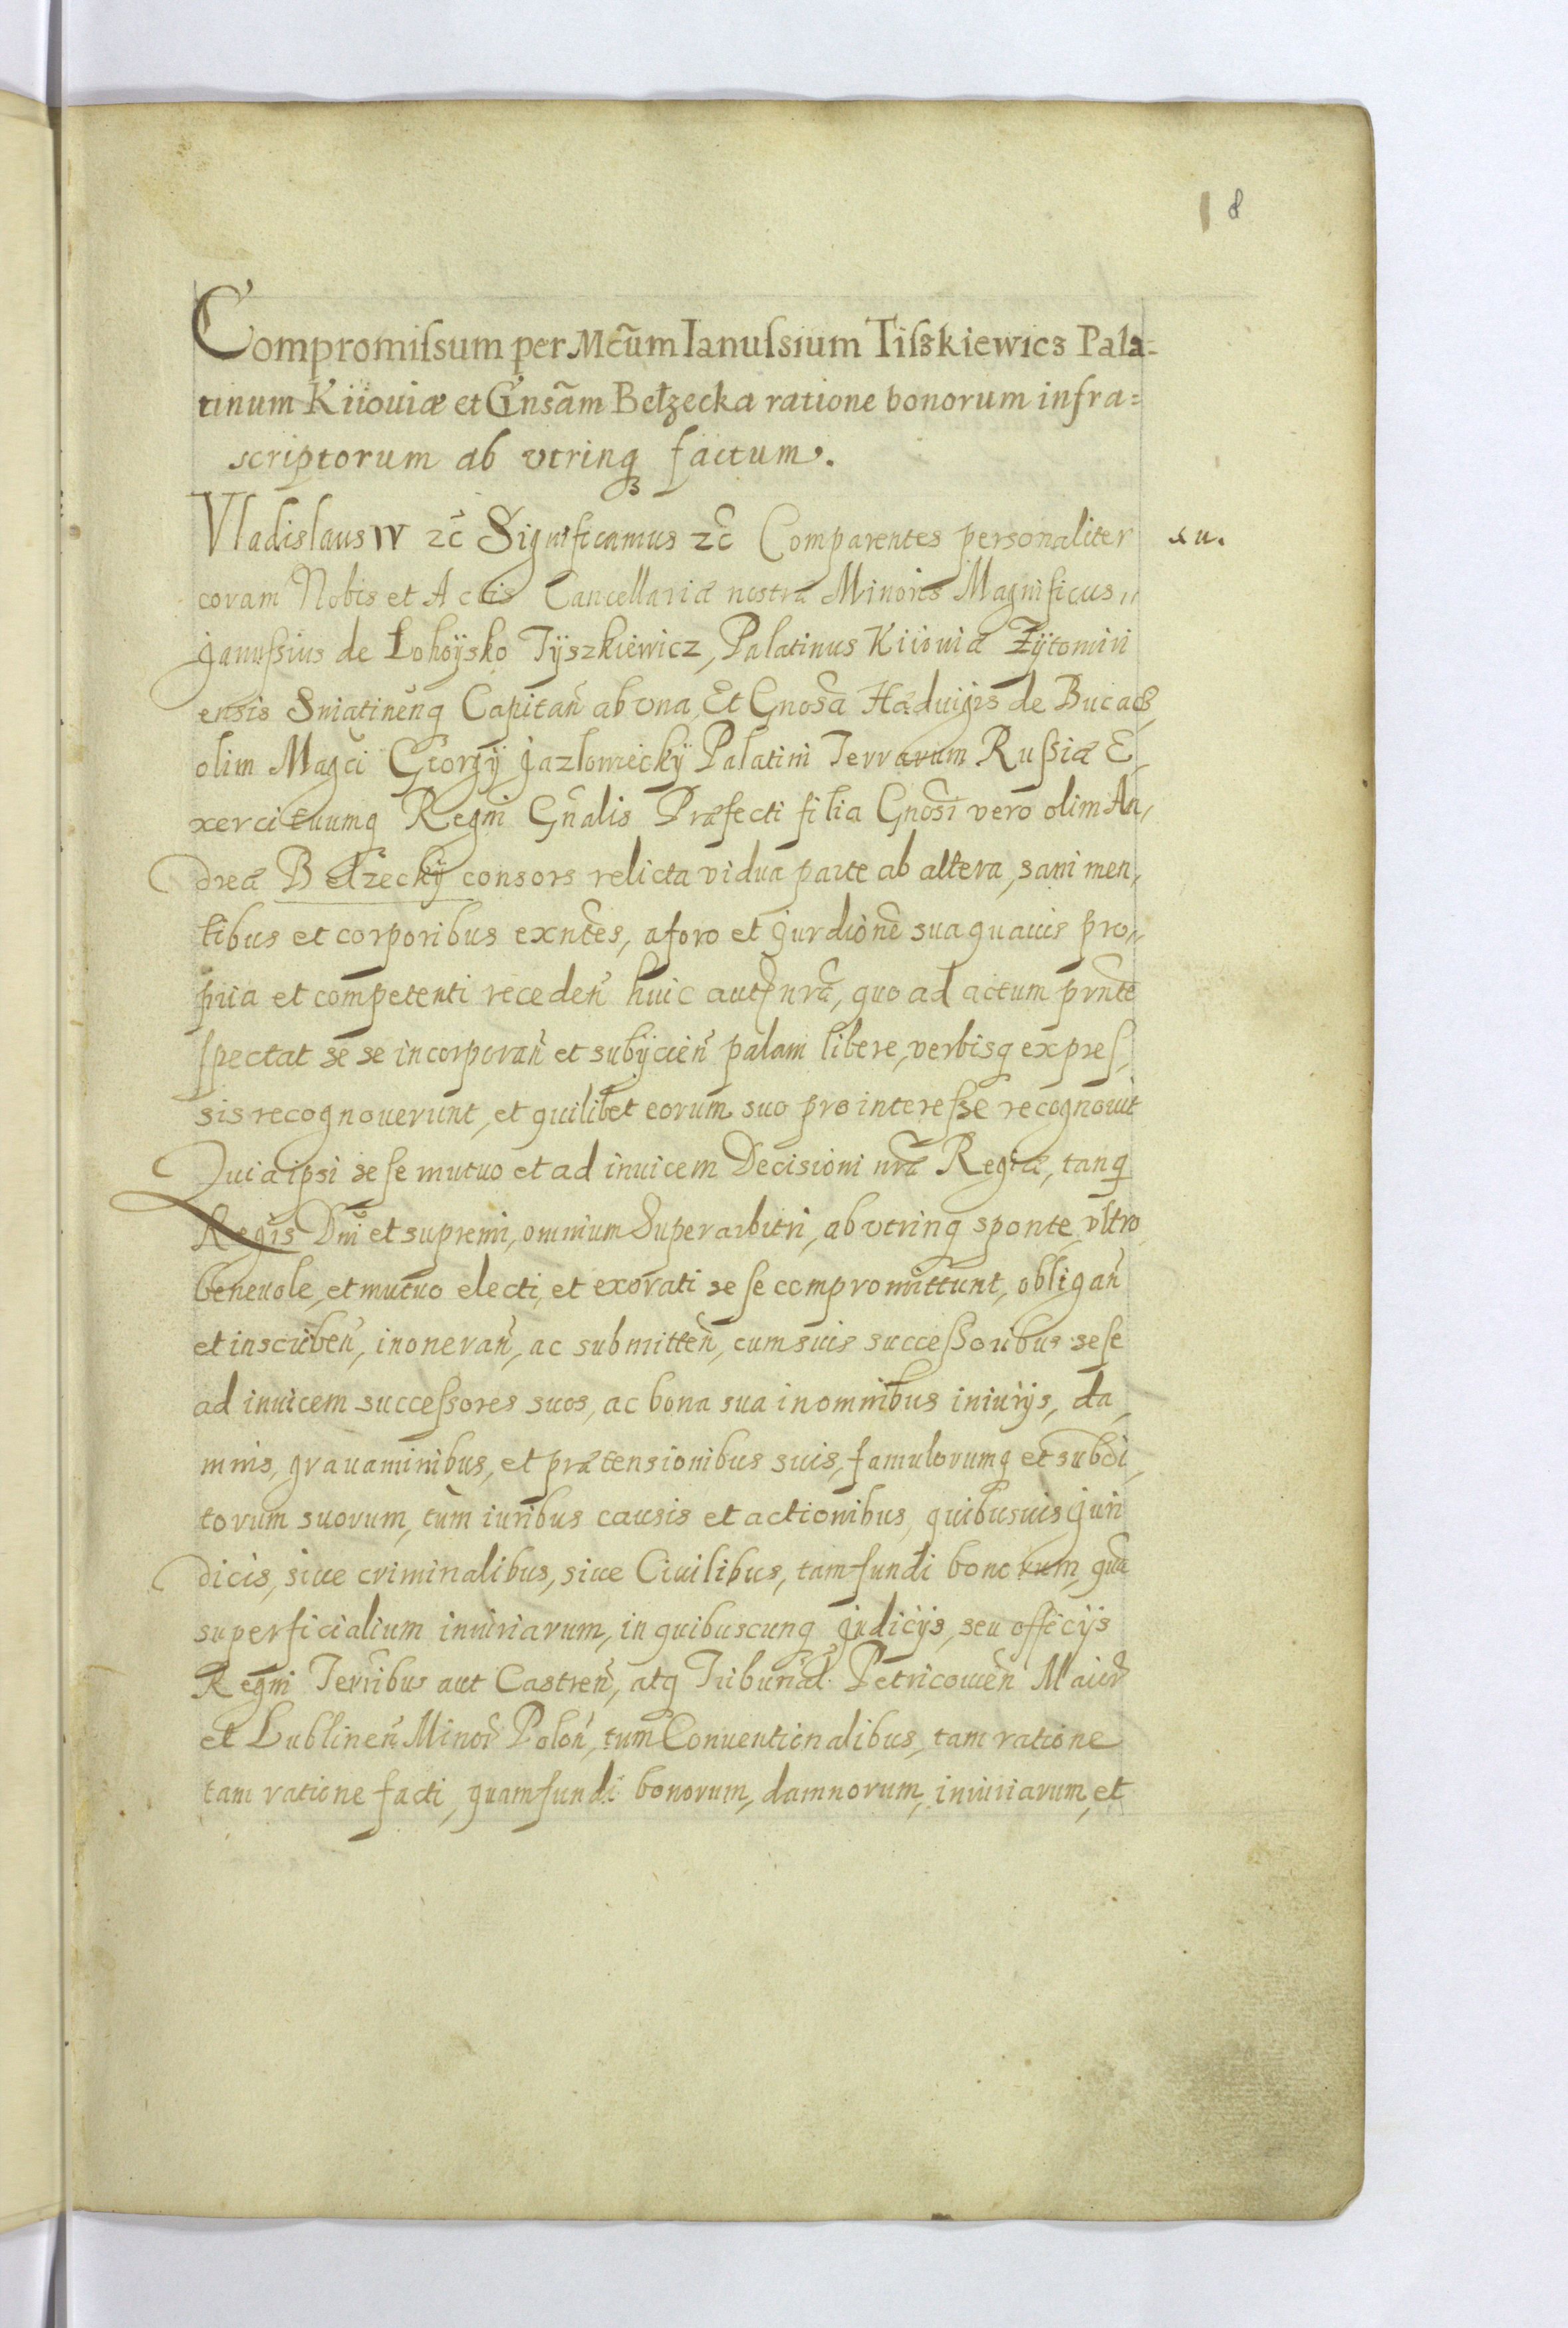 8
Compromiſsum per Mc̃um Ianuſsium Tiſzkiewics Pala=
tinum Kiiouiæ et Gnsãm Bełzecka ratione bonorum infra=
scriptorum ab vtrinq factum.
Vladislaus IV zc̃ Significamus zc̃ Comparentes personaliter
coram Nobis et Actis Cancellariæ nostræ Minoris Magnificus,,
Januſsius de Łohoÿsko Tÿszkiewicz, Palatinus Kiiouiæ Zÿtomiri
ensis Sniatinẽnq Capitañ ab vna, Et Gnos̃a Hæduigis de Bucacz,
olim Magc̃i Georgÿ Jazlowieckÿ Palatini Terrarum Ruſsiæ E,
xercituumq Regni Gñalis Præfecti filia Gnos̃i vero olim An,
dreæ Bełzeckÿ consors relicta vidua parte ab altera, sani men,
tibus et corporibus exñtes, a foro et Jurdionẽ sua quauis pro,,
pria et competenti recedeñ huic autẽ nrã, quo ad actum prñte
ſpectat se se incorporañ et subÿcieñ palam libere, verbisq expreſ,
sis recognouerunt, et quilibet eorum suo pro intereſse recognouit
Quia ipsi se ſe mutuo et ad inuicem Decisioni nrã Regiæ, tanq
Regis Dni et supremi, omnium Superarbitri, ab vtrinq sponte, vltro
beneuole, et mutuo electi, et exorati se ſe compromittunt, obligañ
et inscribeñ, inonerañ, ac submitteñ, cum suis succeſsoribus se ſe
ad inuicem succeſsores suos, ac bona sua in omnibus iniurÿs, da,
mnis, grauaminibus, et prætensionibus suis, famulorumq et subdi,
torum suorum, tum iuribus causis et actionibus, quibusuis Juri
dicis, siue criminalibus, siue Ciuilibus, tam fundi bonorum, quã
superficialium iniuriarum, in quibuscunq Judicÿs, seu officÿs
Regni Terribus aut Castreñ, atq Tribunal. Petricouieñ Maior̃
et Lublineñ Minor̃ Poloñ, tum Conuentionalibus, tam ratione
tam ratione facti, quam fundi bonorum, damnorum, iniuriarum, et